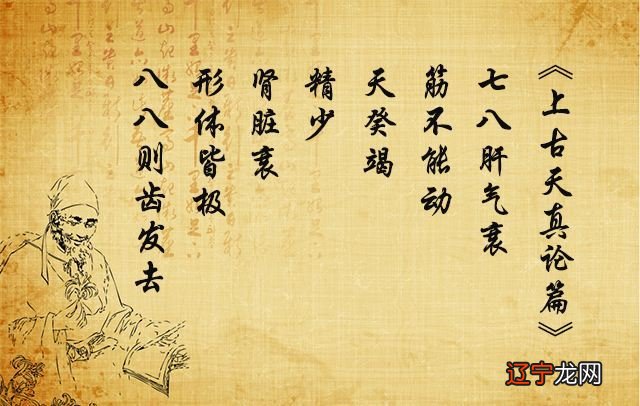 《上古天真论篇》
七八肝气衰
筋不能动
天癸竭
精少
肾脏衰
形体皆极
八八则齿发去
辽宁龙网